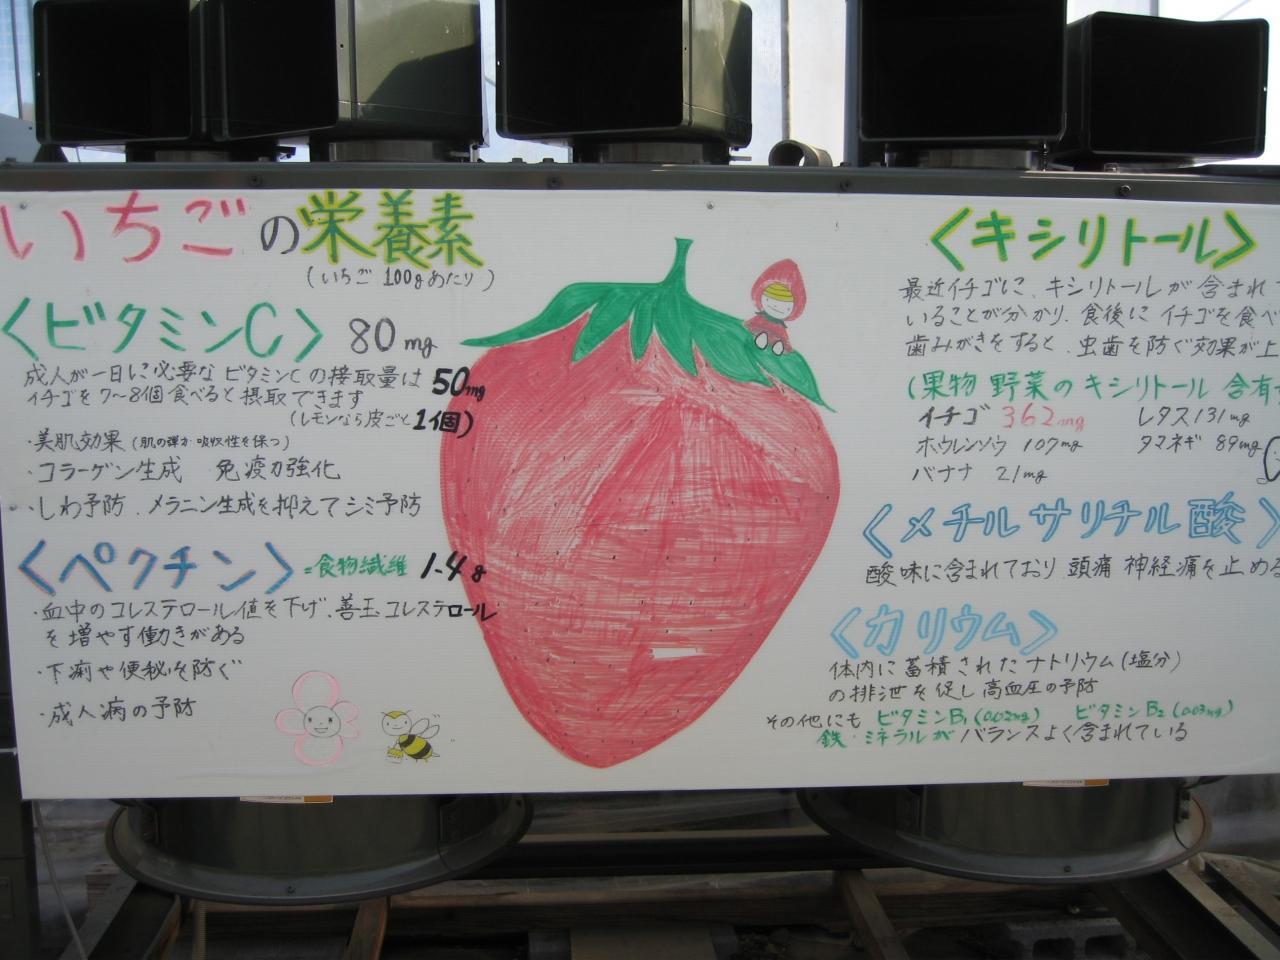 いちごの栄養素
(いちご 100gあたり)
<ビタミンC> 80mg
成人が一日に必要なビタミンCの接取量は 50mg
イチゴを7〜8個食べると摂取できます
(レモンなら皮ごと1個)
・美肌効果(肌の弾力 吸収性を保つ)
・コラーゲン生成 免疫力強化
・しわ予防、メラニン生成を抑えてシミ予防
<ペクチン>=食物繊維 1.4g
・血中のコレステロール値を下げ、善玉コレステロール
を増やす働きがある
・下痢や便秘を防ぐ
・成人病の予防
<キシリトール>
最近イチゴに、キシリトールが含まれて
いることが分かり、食後にイチゴを食べ
歯みがきをすると、虫歯を防ぐ効果が上
(果物 野菜のキシリトール 含有
イチゴ 362mg レタス131mg
ホウレンソウ 107mg タマネギ 89mg
バナナ 21mg
<メチルサリチル酸>
酸味に含まれており 頭痛 神経痛を止める
<カリウム>
体内に蓄積されたナトリウム(塩分)
の排泄を促し 高血圧の予防
その他にも ビタミンB₁(0.02mg) ビタミンB₂(0.03mg)
鉄・ミネラルがバランスよく含まれている